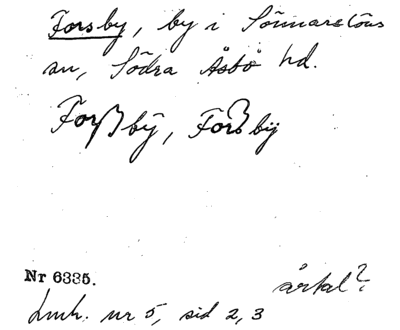 Forsby, by i Sönnarslövs
sn, Södra Åsbo hd.
Forßbÿ, Forsbÿ
Nr 6335.
årtal?
Lmh. nr 5, sid 2, 3